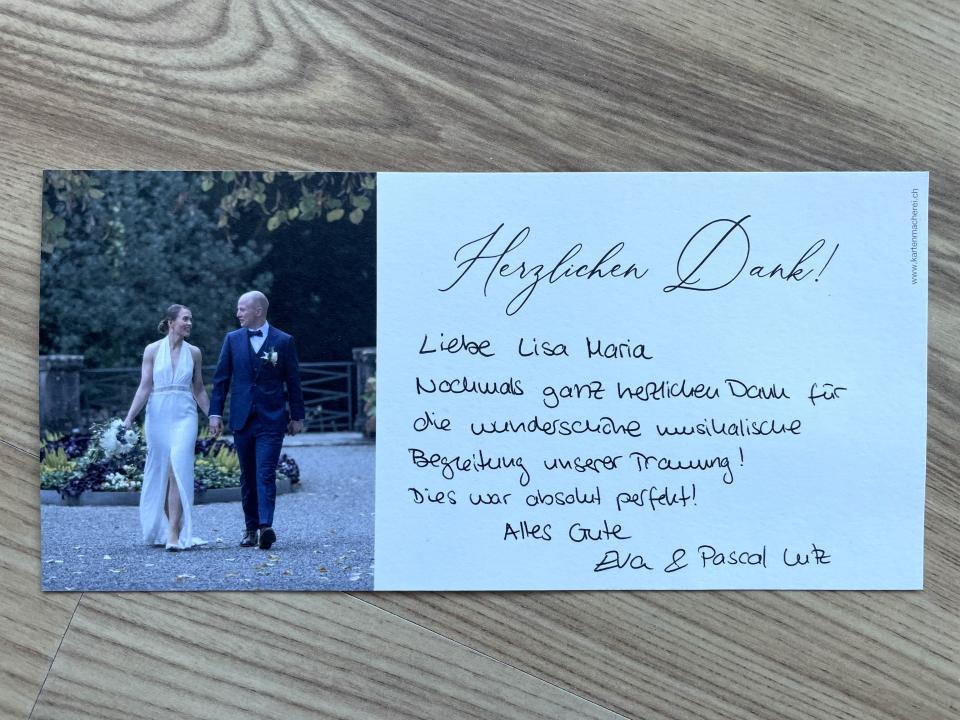 Herzlichen Dank!
Liebe Lisa Maria
Nochmals ganz herzlichen Dank für
die wunderschöne musikalische
Begleitung unserer Trauung!
Dies war absolut perfekt!
Alles Gute
Eva & Pascal Lutz
www.kartenmacherei.ch